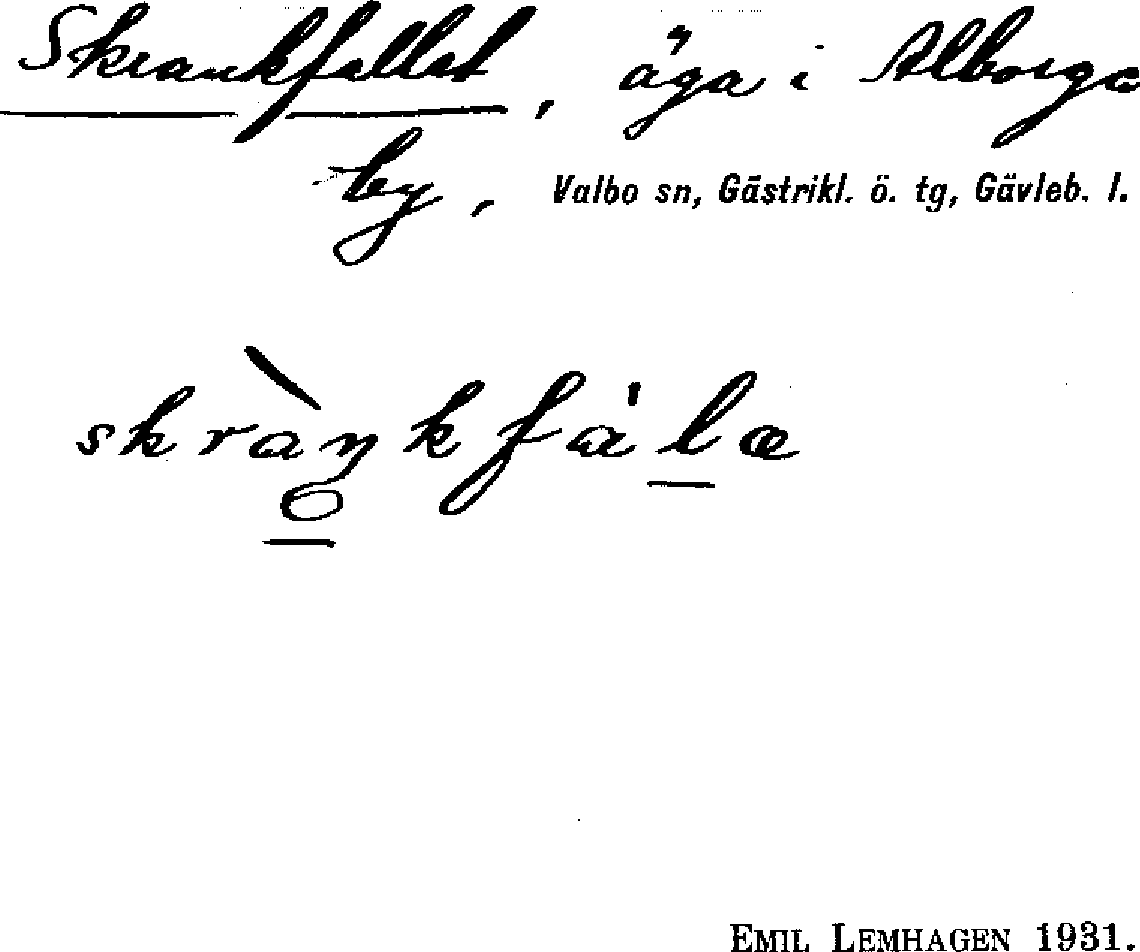 Skrankfallet, äga i Alborga
by, Valbo sn, Gästrikl. ö. tg, Gävleb. l.
skràŋkfálæ
EMIL LEMHAGEN 1931.